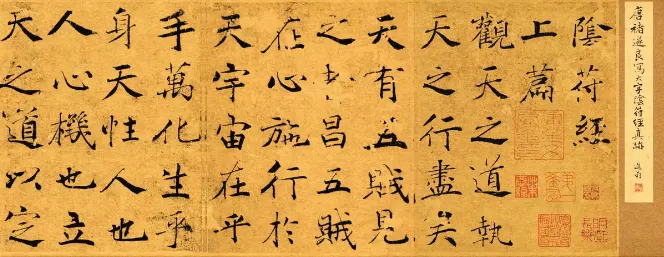 唐褚遂良寫大字陰符經真跡
陰符經
上萹
觀天之道執
天之行盡矣
天有五賊見
之者昌五賊
在心施行於
天宇宙在乎
手萬化生乎
身天性人也
人心機也立
天之道以定